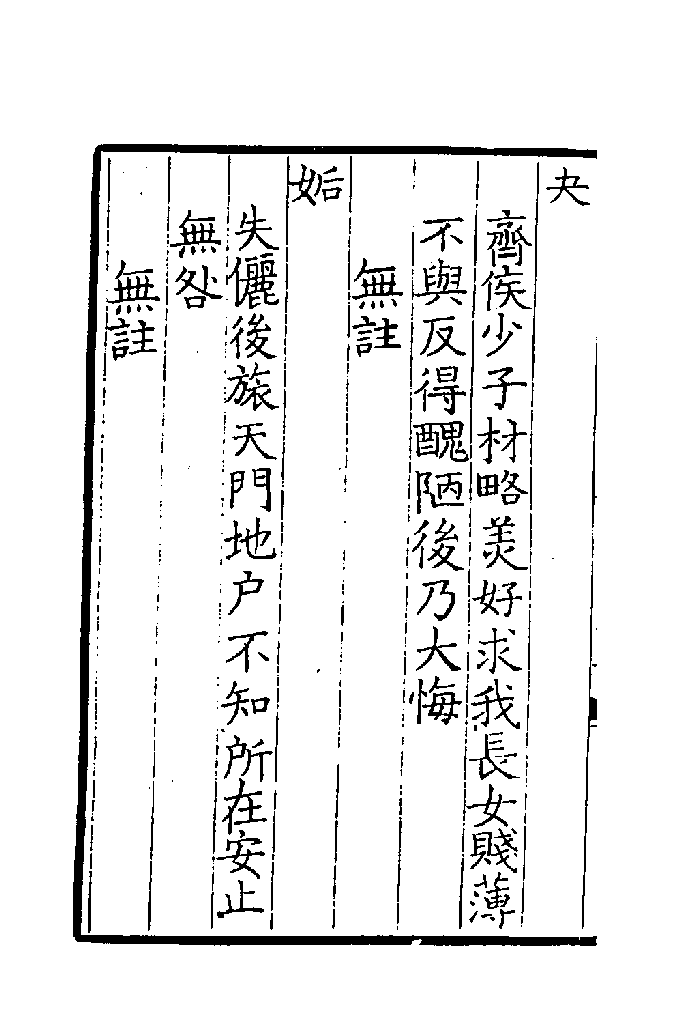 夬
齊侯少子材略美好求我長女賤薄
不與反得醜陋後乃大悔
無註
姤
失儷後旅天門地户不知所在安止
無咎
無註